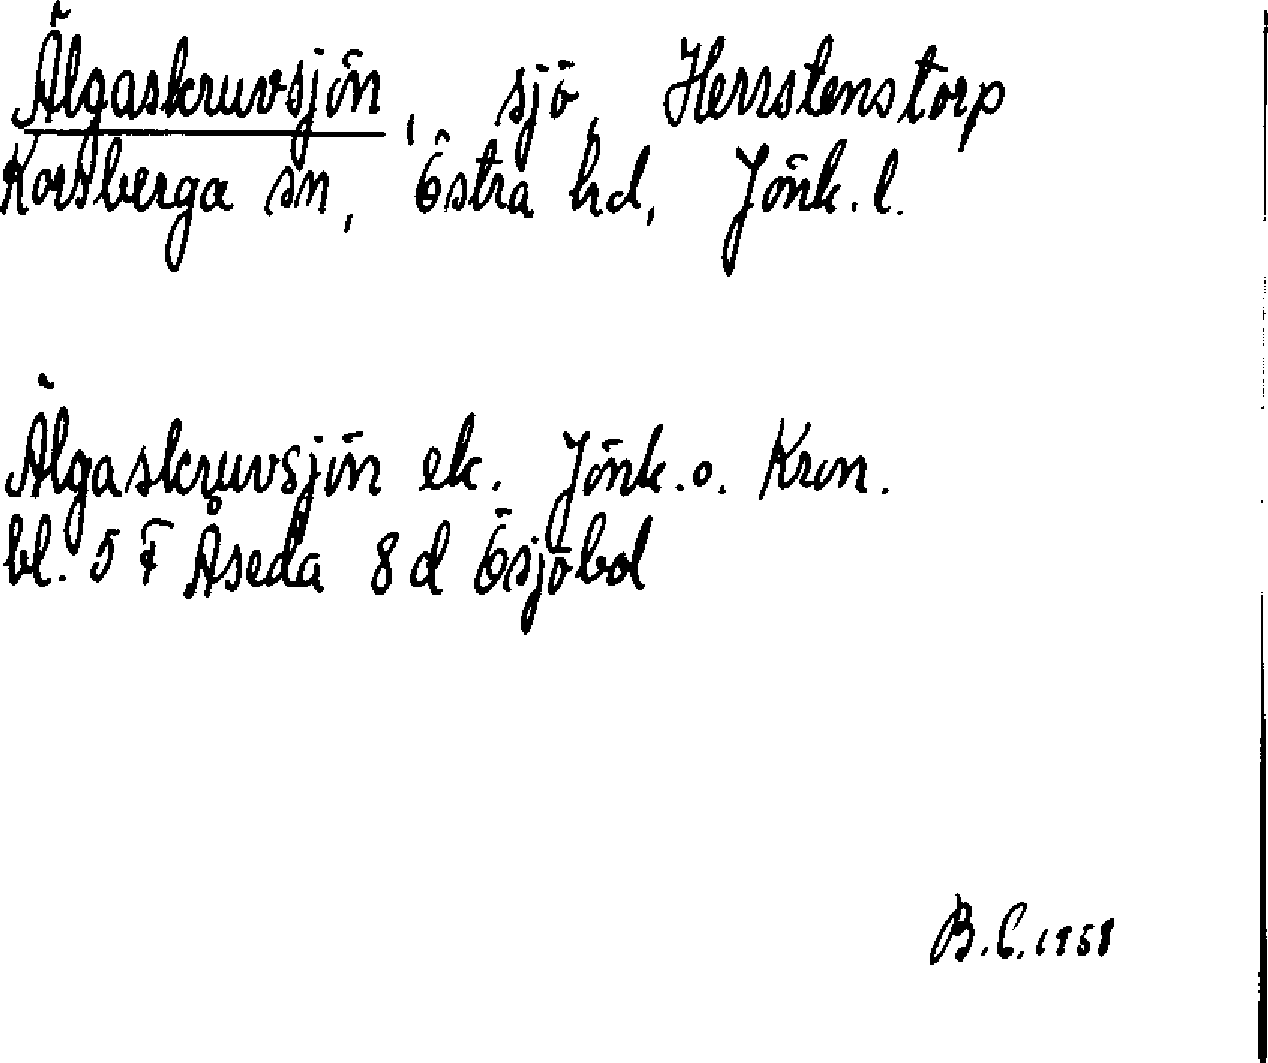 Älgaskruvsjön, sjö, Herrstenstorp
Korsberga sn, Östra hd, Jönk. l.
Älgaskruvsjön ek. Jönk. o. Kron.
bl. 5 F Åseda 8 d Ösjöbol
B.C. 1958